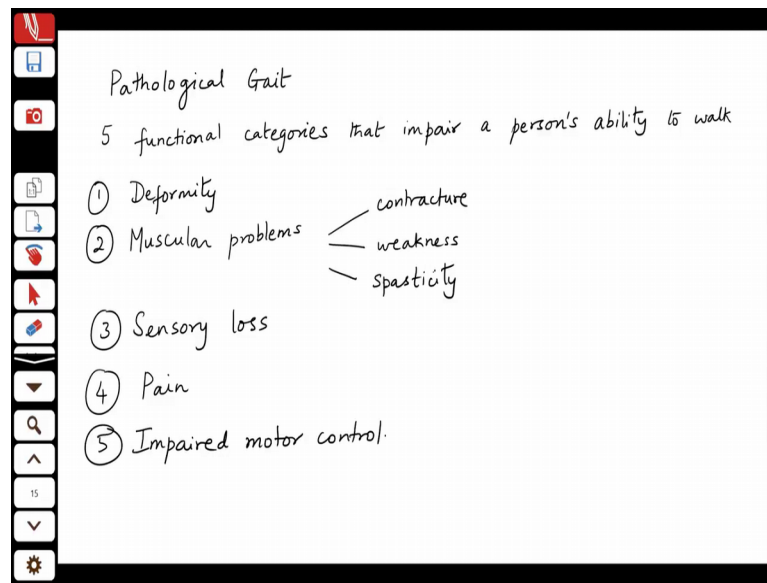 Pathological Gait
5 functional categories that impair a person's ability to walk
① Deformity
② Muscular problems
contracture
weakness
spasticity
③ Sensory loss
④ Pain
⑤ Impaired motor control.
15